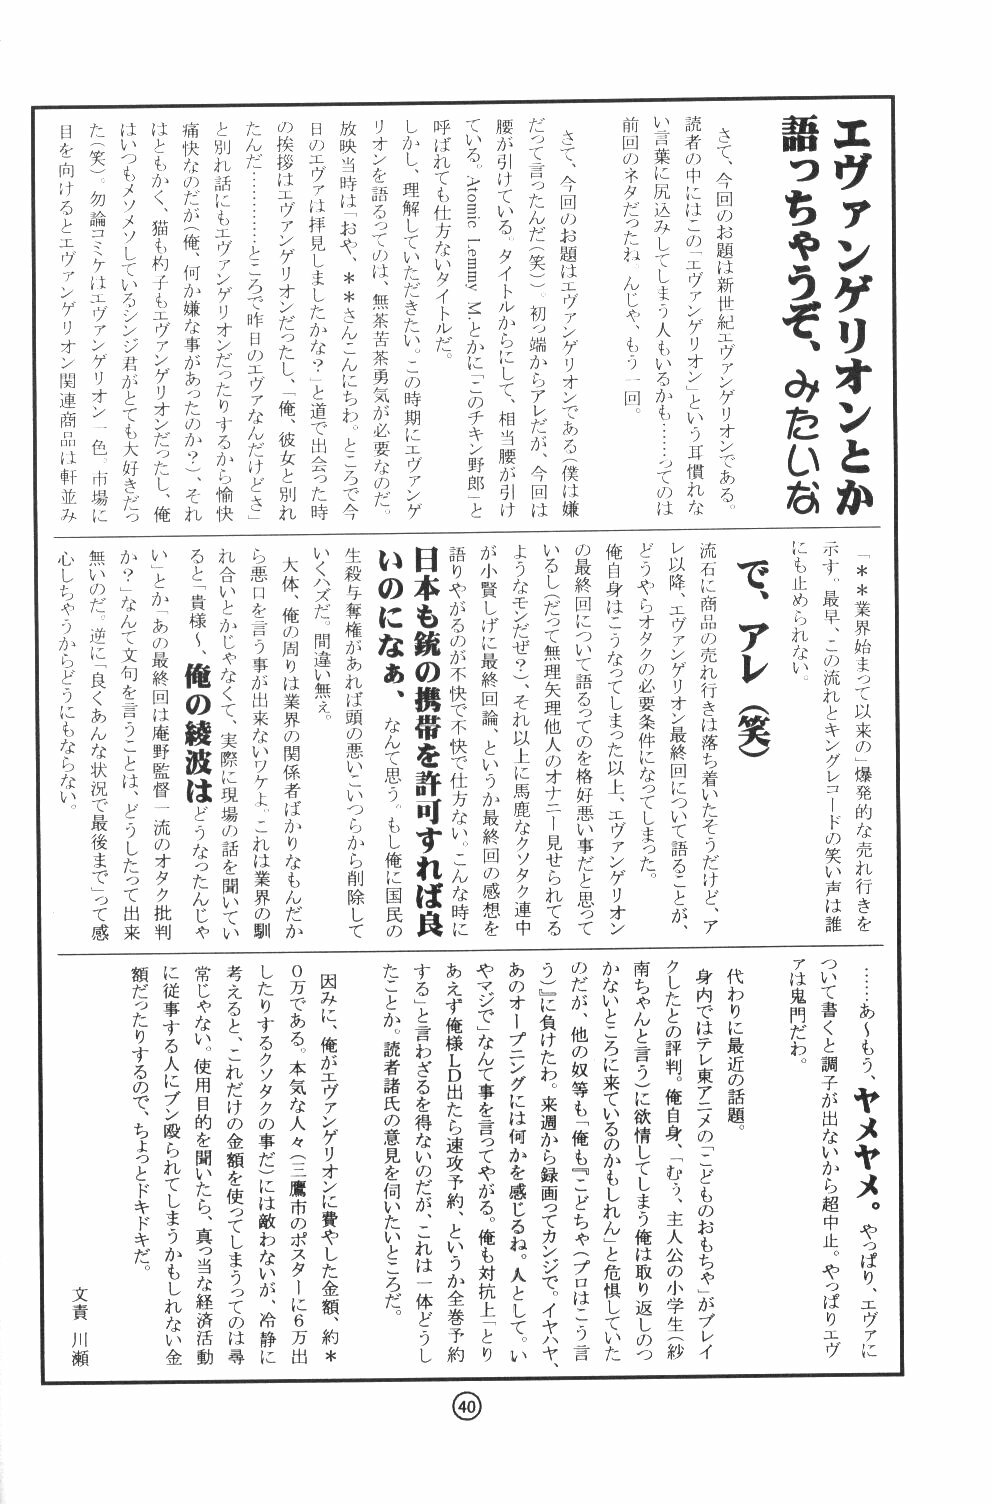 エヴァンゲリオンとか
語っちゃうぞ、みたいな
さて、今回のお題は新世紀エヴァンゲリオンである。
読者の中にはこの「エヴァンゲリオン」という耳慣れな
い言葉に尻込みしてしまう人もいるかも……ってのは
前回のネタだったね。んじゃ、もう一回。
さて、今回のお題はエヴァンゲリオンである(僕は嫌
だって言ったんだ(笑))。初っ端からアレだが、今回は
腰が引けている。タイトルからにして、相当腰が引け
ている。Atomic Lemmy M.とかに「このチキン野郎」と
呼ばれても仕方ないタイトルだ。
しかし、理解していただきたい。この時期にエヴァンゲ
リオンを語るってのは、無茶苦茶勇気が必要なのだ。
放映当時は「おや、＊＊さんこんにちわ。ところで今
日のエヴァは拝見しましたかな?」と道で出会った時
の挨拶はエヴァンゲリオンだったし、「俺、彼女と別れ
たんだ…………ところで昨日のエヴァなんだけどさ」
と別れ話にもエヴァンゲリオンだったりするから愉快
痛快なのだが(俺、何か嫌な事があったのか?)、それ
はともかく、猫も杓子もエヴァンゲリオンだったし、俺
はいつもメソメソしているシンジ君がとても大好きだっ
た(笑)。勿論コミケはエヴァンゲリオン一色。市場に
目を向けるとエヴァンゲリオン関連商品は軒並み
「＊＊業界始まって以来の」爆発的な売れ行きを
示す。最早、この流れとキングレコードの笑い声は誰
にも止められない。
で、アレ(笑)
流石に商品の売れ行きは落ち着いたそうだけど、ア
レ以降、エヴァンゲリオン最終回について語ることが、
どうやらオタクの必要条件になってしまった。
俺自身はこうなってしまった以上、エヴァンゲリオン
の最終回について語るってのを格好悪い事だと思って
いるし(だって無理矢理他人のオナニー見せられてる
ようなモンだぜ?)、それ以上に馬鹿なクソタク連中
が小賢しげに最終回論、というか最終回の感想を
語りやがるのが不快で不快で仕方ない。こんな時に
日本も銃の携帯を許可すれば良
いのになぁ、なんて思う。もし俺に国民の
生殺与奪権があれば頭の悪いこいつらから削除して
いくハズだ。間違い無ぇ。
大体、俺の周りは業界の関係者ばかりなもんだか
ら悪口を言う事が出来ないワケよ。これは業界の馴
れ合いとかじゃなくて、実際に現場の話を聞いてい
ると「貴様～、俺の綾波はどうなったんじゃ
い」とか「あの最終回は庵野監督一流のオタク批判
か?」なんて文句を言うことは、どうしたって出来
無いのだ。逆に「良くあんな状況で最後まで」って感
心しちゃうからどうにもならない。
……あ～もう、ヤメヤメ。やっぱり、エヴァに
ついて書くと調子が出ないから超中止。やっぱりエヴ
アは鬼門だわ。
代わりに最近の話題。
身内ではテレ東アニメの「こどものおもちゃ」がブレイ
クしたとの評判。俺自身、「むう、主人公の小学生(紗
南ちゃんと言う)に欲情してしまう俺は取り返しのつ
かないところに来ているのかもしれん」と危惧していた
のだが、他の奴等も「俺も『こどちゃ(プロはこう言
う)』に負けたわ。来週から録画ってカンジで。イヤハヤ、
あのオープニングには何かを感じるね。人として。い
やマジで」なんて事を言ってやがる。俺も対抗上「とり
あえず俺様LD出たら速攻予約、というか全巻予約
する」と言わざるを得ないのだが、これは一体どうし
たことか。読者諸氏の意見を伺いたいところだ。
因みに、俺がエヴァンゲリオンに費やした金額、約＊
0万である。本気な人々(三鷹市のポスターに6万出
したりするクソタクの事だ)には敵わないが、冷静に
考えると、これだけの金額を使ってしまうってのは尋
常じゃない。使用目的を聞いたら、真っ当な経済活動
に従事する人にブン殴られてしまうかもしれない金
額だったりするので、ちょっとドキドキだ。
文責 川瀬
40